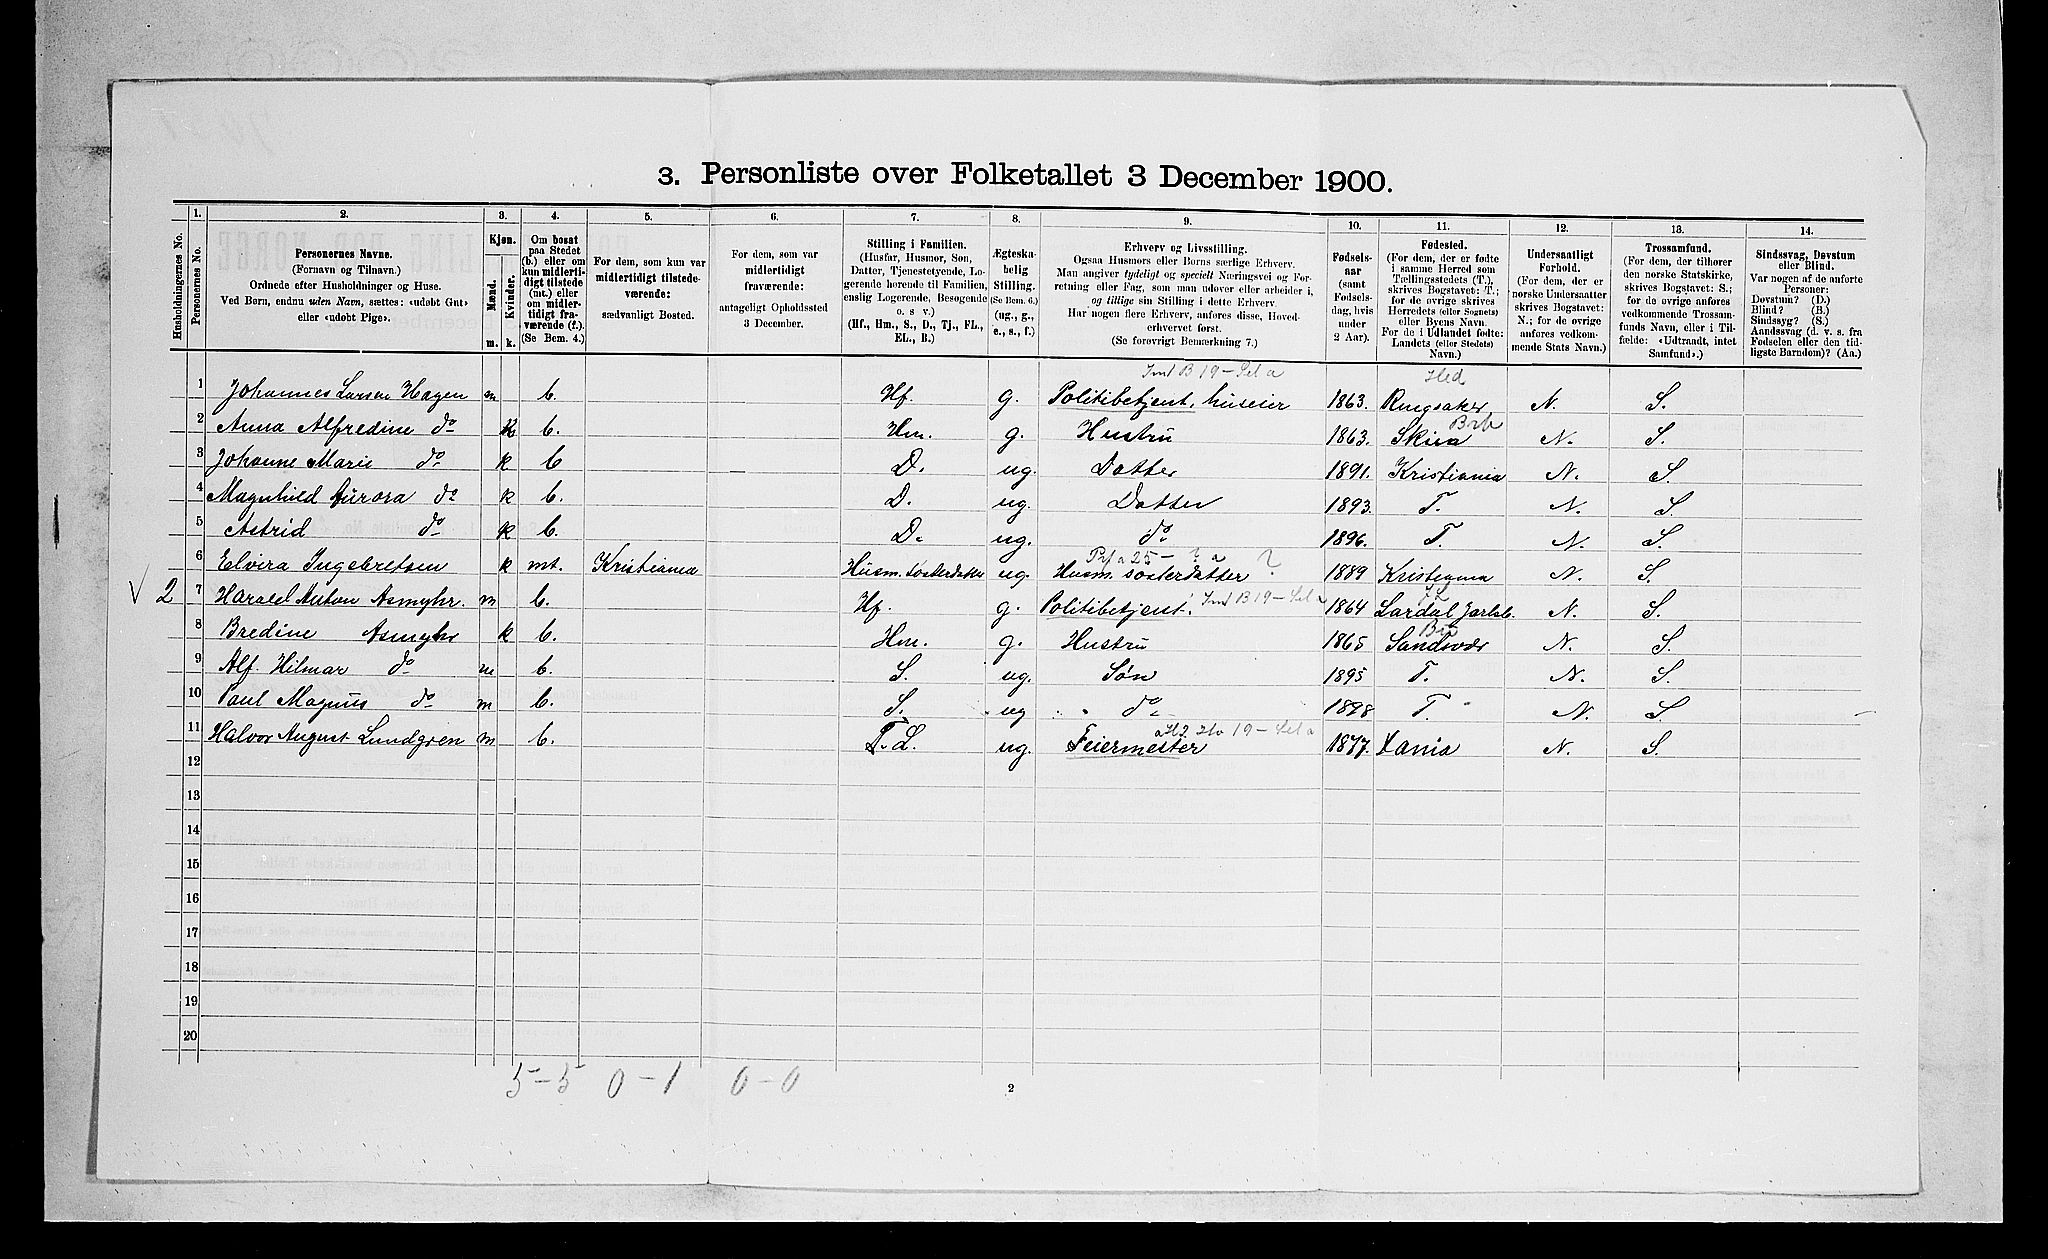 3. Personliste over Folketallet 3 December 1900.
1. 2. 3. 4. 5. 6. 7. 8. 9. 10. 11. 12. 13. 14.
Husholdningernes No.
Personernes No.
Personernes Navne.
(Fornavn og Tilnavn.)
Ordnede efter Husholdninger og Huse.
Ved Børn, endnu uden Navn, sættes: «udøbt Gut»
eller «udøbt Pige».
Kjøn.
Mænd.
Kvinder.
m. k.
Om bosat
paa Stedet
(b.) eller om
kun midlerti-
digt tilstede
(mt.) eller
om midler-
tidigt fra-
værende (f.).
(Se Bem. 4.)
For dem, som kun var
midlertidigt tilstede-
værende:
sædvanligt Bosted.
For dem, som var
midlertidigt
fraværende:
antageligt Opholdssted
3 December.
Stilling i Familien.
(Husfar, Husmor, Søn,
Datter, Tjenestetyende, Lo-
gerende hørende til Familien,
enslig Logerende, Besøgende
o. s v.)
(Hf., Hm., S., D., Tj., FL.,
EL., B.)
Ægteska-
belig
Stilling.
(Se Bem. 6.)
(ug., g.,
e., s., f.)
Erhverv og Livsstilling.
Ogsaa Husmors eller Børns særlige Erhverv.
Man angiver tydeligt og specielt Næringsvei og For-
retning eller Fag, som man udøver eller arbeider i,
og tillige sin Stilling i dette Erhverv.
Har nogen flere Erhverv, anføres disse, Hoved-
erhvervet først.
(Se forøvrigt Bemærkning 7.)
Fødsels-
aar
(samt
Fødsels-
dag, hvis
under
2 Aar).
Fødested.
(For dem, der er fødte
i samme Herred som
Tællingsstedets (T.),
skrives Bogstavet: T.;
for de øvrige skrives
Herredets (eller Sognets)
eller Byens Navn.
For de i Udlandet fødte:
Landets (eller Stedets)
Navn.)
Undersaatligt
Forhold.
(For dem, der er
norske Undersaatter
skrives Bogstavet:
N.; for de øvrige
anføres vedkom-
mende Stats Navn.)
Trossamfund.
(For dem, der tilhører
den norske Statskirke,
skrives Bogstavet: S.;
for de øvrige anføres
vedkommende Trossam-
funds Navn, eller i Til-
fælde: «Udtraadt, intet
Samfund».)
Sindssvag, Døvstum
eller Blind.
Var nogen af de anførte
Personer:
Døvstum? (D.)
Blind? (B.)
Sindssyg? (S.)
Aandssvag (d. v. s. fra
Fødselen eller den tid-
ligste Barndom)? (Aa.)
Hed
1 Johannes Larsen Hagen m b. Hf. g. Politibetjent, huseier 1863. Ringsaker N. S.
2 Anna Alfredine do k b. Hm. g. Hustru 1863. N. S.
3 Johanne Marie do k b D. ug. Datter 1891. Kristiania N. S.
4 Magnhild Aurora do k b. D. ug. Datter 1893. T. N. S.
5 Astrid do k b. D. ug. do 1896. T. N. S.
6 Elvira Ingebretsen k mt. Kristiania Husm. søsterdatter ug. Husm. søsterdatter ? 1889 Kristiania N. S.
2 7 Harald Anton Asmyhr. m b. Hf. g. Politibetjent. 1864 Lardal Jarlsb. N. S.
8 Bredine Asmyhr k b. Hm. g. Hustru 1865 Sandsvær N. S.
9 Alf Hilmar do m b. S. ug. Søn 1895 T. N. S.
10 Paul Magnus do m b. S. ug do 1898 T. N. S.
11 Halvor August Lundgren m b. L. ug. Feiermester 1877. Xania N. S.
12
13
14
15
16
17
18
19
20
5-5 0-1 0-0
2